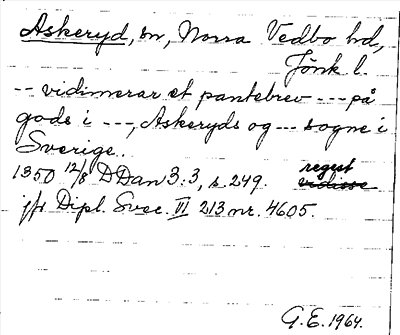 Askeryd, sn, Norra Vedbo hd,
Jönk l.
-- vidimerar et pantebrev --- på
gods i ---, Askeryds og --- sogne i
Sverige.
1350 12/8 DDan 3:3, s. 249. regest
jfr Dipl. Svec. VI 213 nr. 4605.
G.E. 1964.